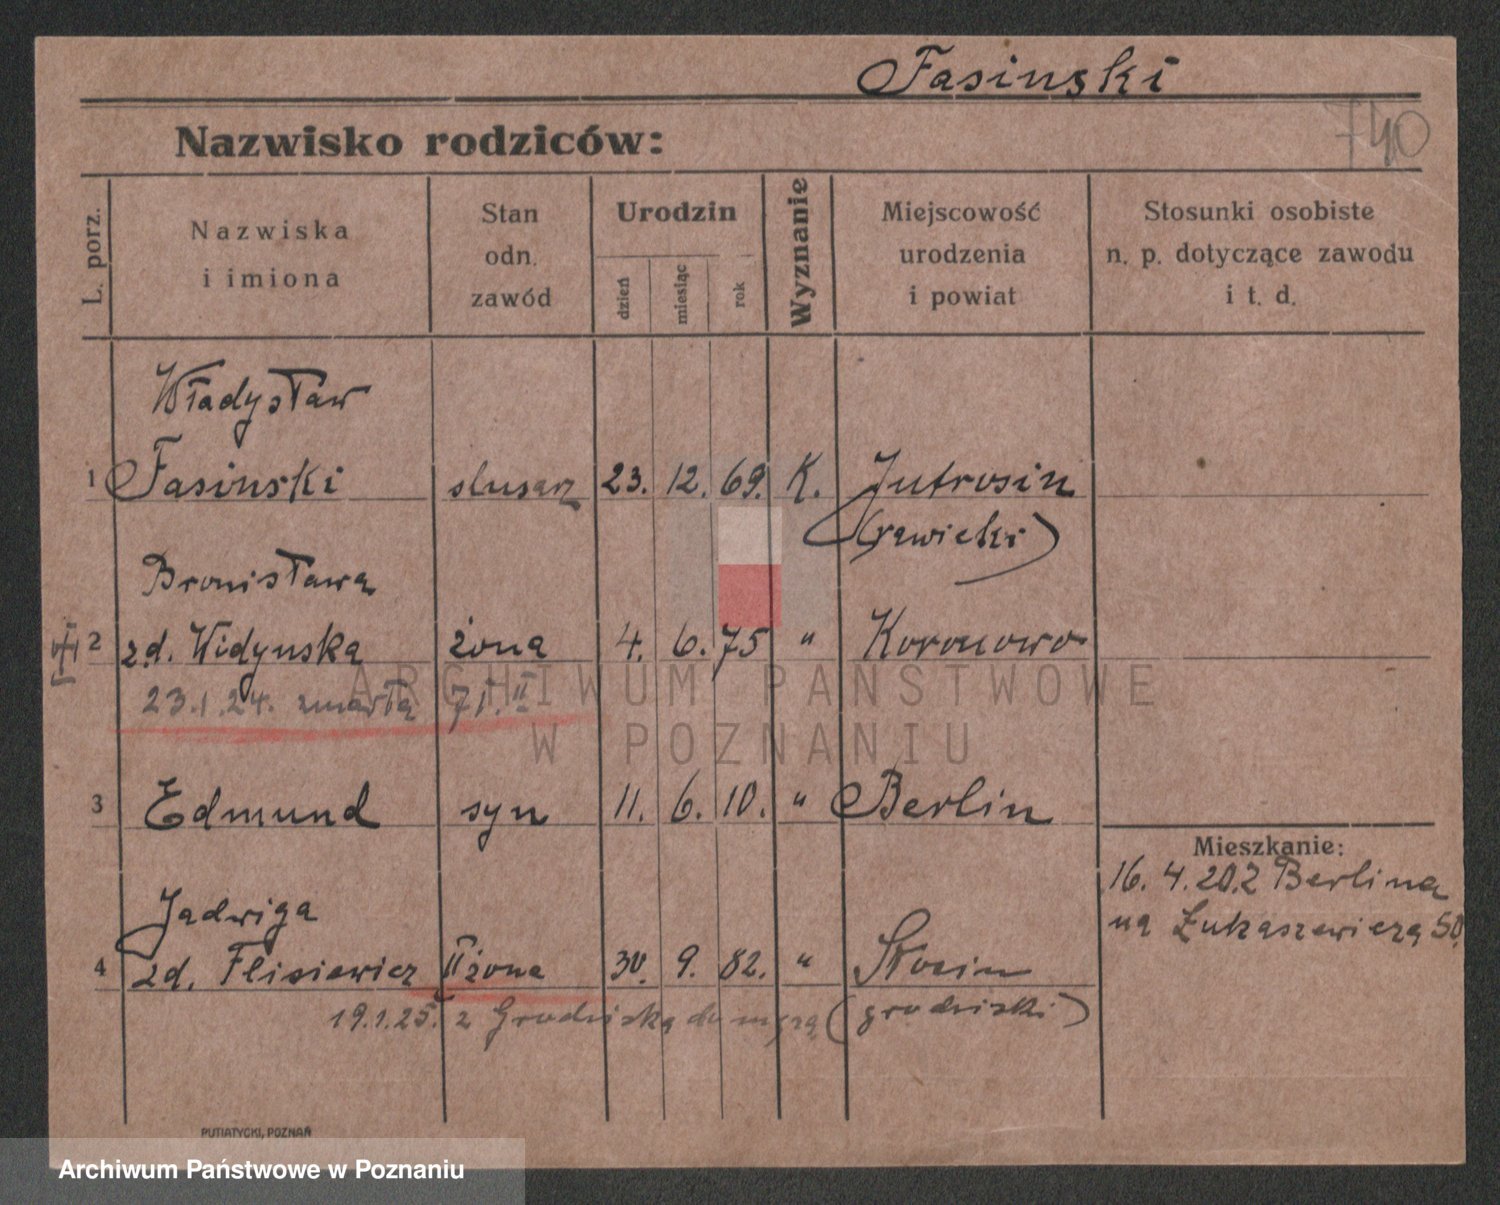 Fasinski
740
Nazwisko rodziców:
L. porz.
Nazwiska
i imiona
Stan
odn.
zawód
Urodzin
dzień
miesiąc
rok
Wyznanie
Miejscowość
urodzenia
i powiat
Stosunki osobiste
n. p. dotyczące zawodu
i t. d.
Władysław
1 Fasinski slusarz 23. 12. 69. K. Jutrosin
(rawicki)
Bronisława
2 zd. Widynska żona 4. 6. 75 " Koronowo
23.1.24. zmarła
3 Edmund syn 11. 6. 10. " Berlin
Mieszkanie:
16. 4. 20. z Berlina
na Łukaszewicza 50.
Jadwiga
4 zd. Flisiewicz II żona 30. 9. 82. "
19.1.25. z Grodziska do męża (grodziski)
PUTIATYCKI, POZNAŃ
ARCHIWUM PAŃSTWOWE
W POZNANIU
Archiwum Państwowe w Poznaniu